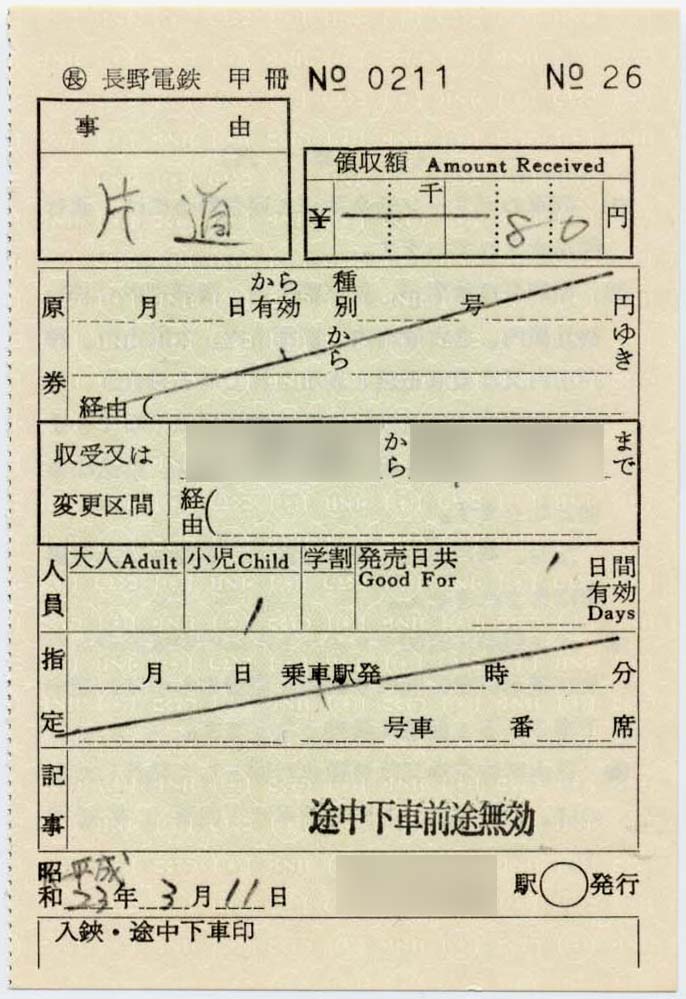 ㊥ 長野電鉄 甲冊 № 0211 № 26
事由
片道
領収額 Amount Received
¥ 千 80 円
原券 月 日から有効 種別 号 円
から ゆき
経由(
収受又は変更区間 から まで
経由(
人員 大人Adult 小児Child 学割 発売日共 Good For 1 日間有効 Days
1
指定 月 日 乗車駅発 時 分
号車 番 席
記事 途中下車前途無効
昭和 平成 23年 3月 11日 駅 発行
入鋏・途中下車印